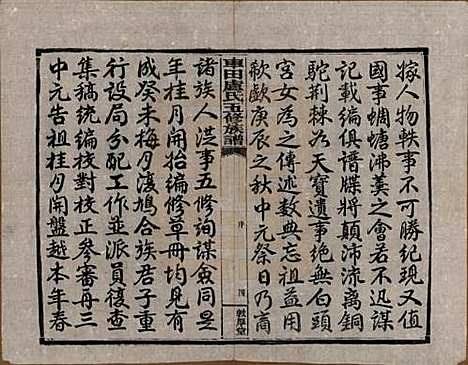 嫁人物軼事不可勝紀現又值
國事蜩螗沸羹之會若不迅謀
記載編俱譜牒將顛沛流萬銅
駝荆棘為天寶遺事絕無白頭
宮女為之傳述數典忘祖益用
歉歔庚辰之秋中元祭日乃商
車田盧氏五修族譜
序
四
敦厚堂
諸族人洪事五修詢謀僉同是
年桂月開始編修草冊均已完
成癸未梅月复鳩合族君子重
行設局分配工作並派員復查
集稿統編校對校正參審再三
中元告祖桂月開盤越本年春